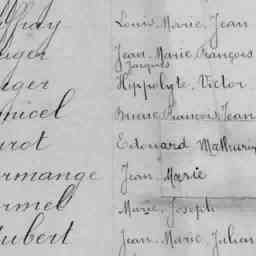 ffray Louis, Marie, Jean
nger Jean-Marie, François
Jacques
nger Hippolyte, Victor
nicel Pierre, François, Jean
urot Edouard Mathurin
rmange Jean, Marie
rmel Marie, Joseph
ubert Jean-Marie, Julian